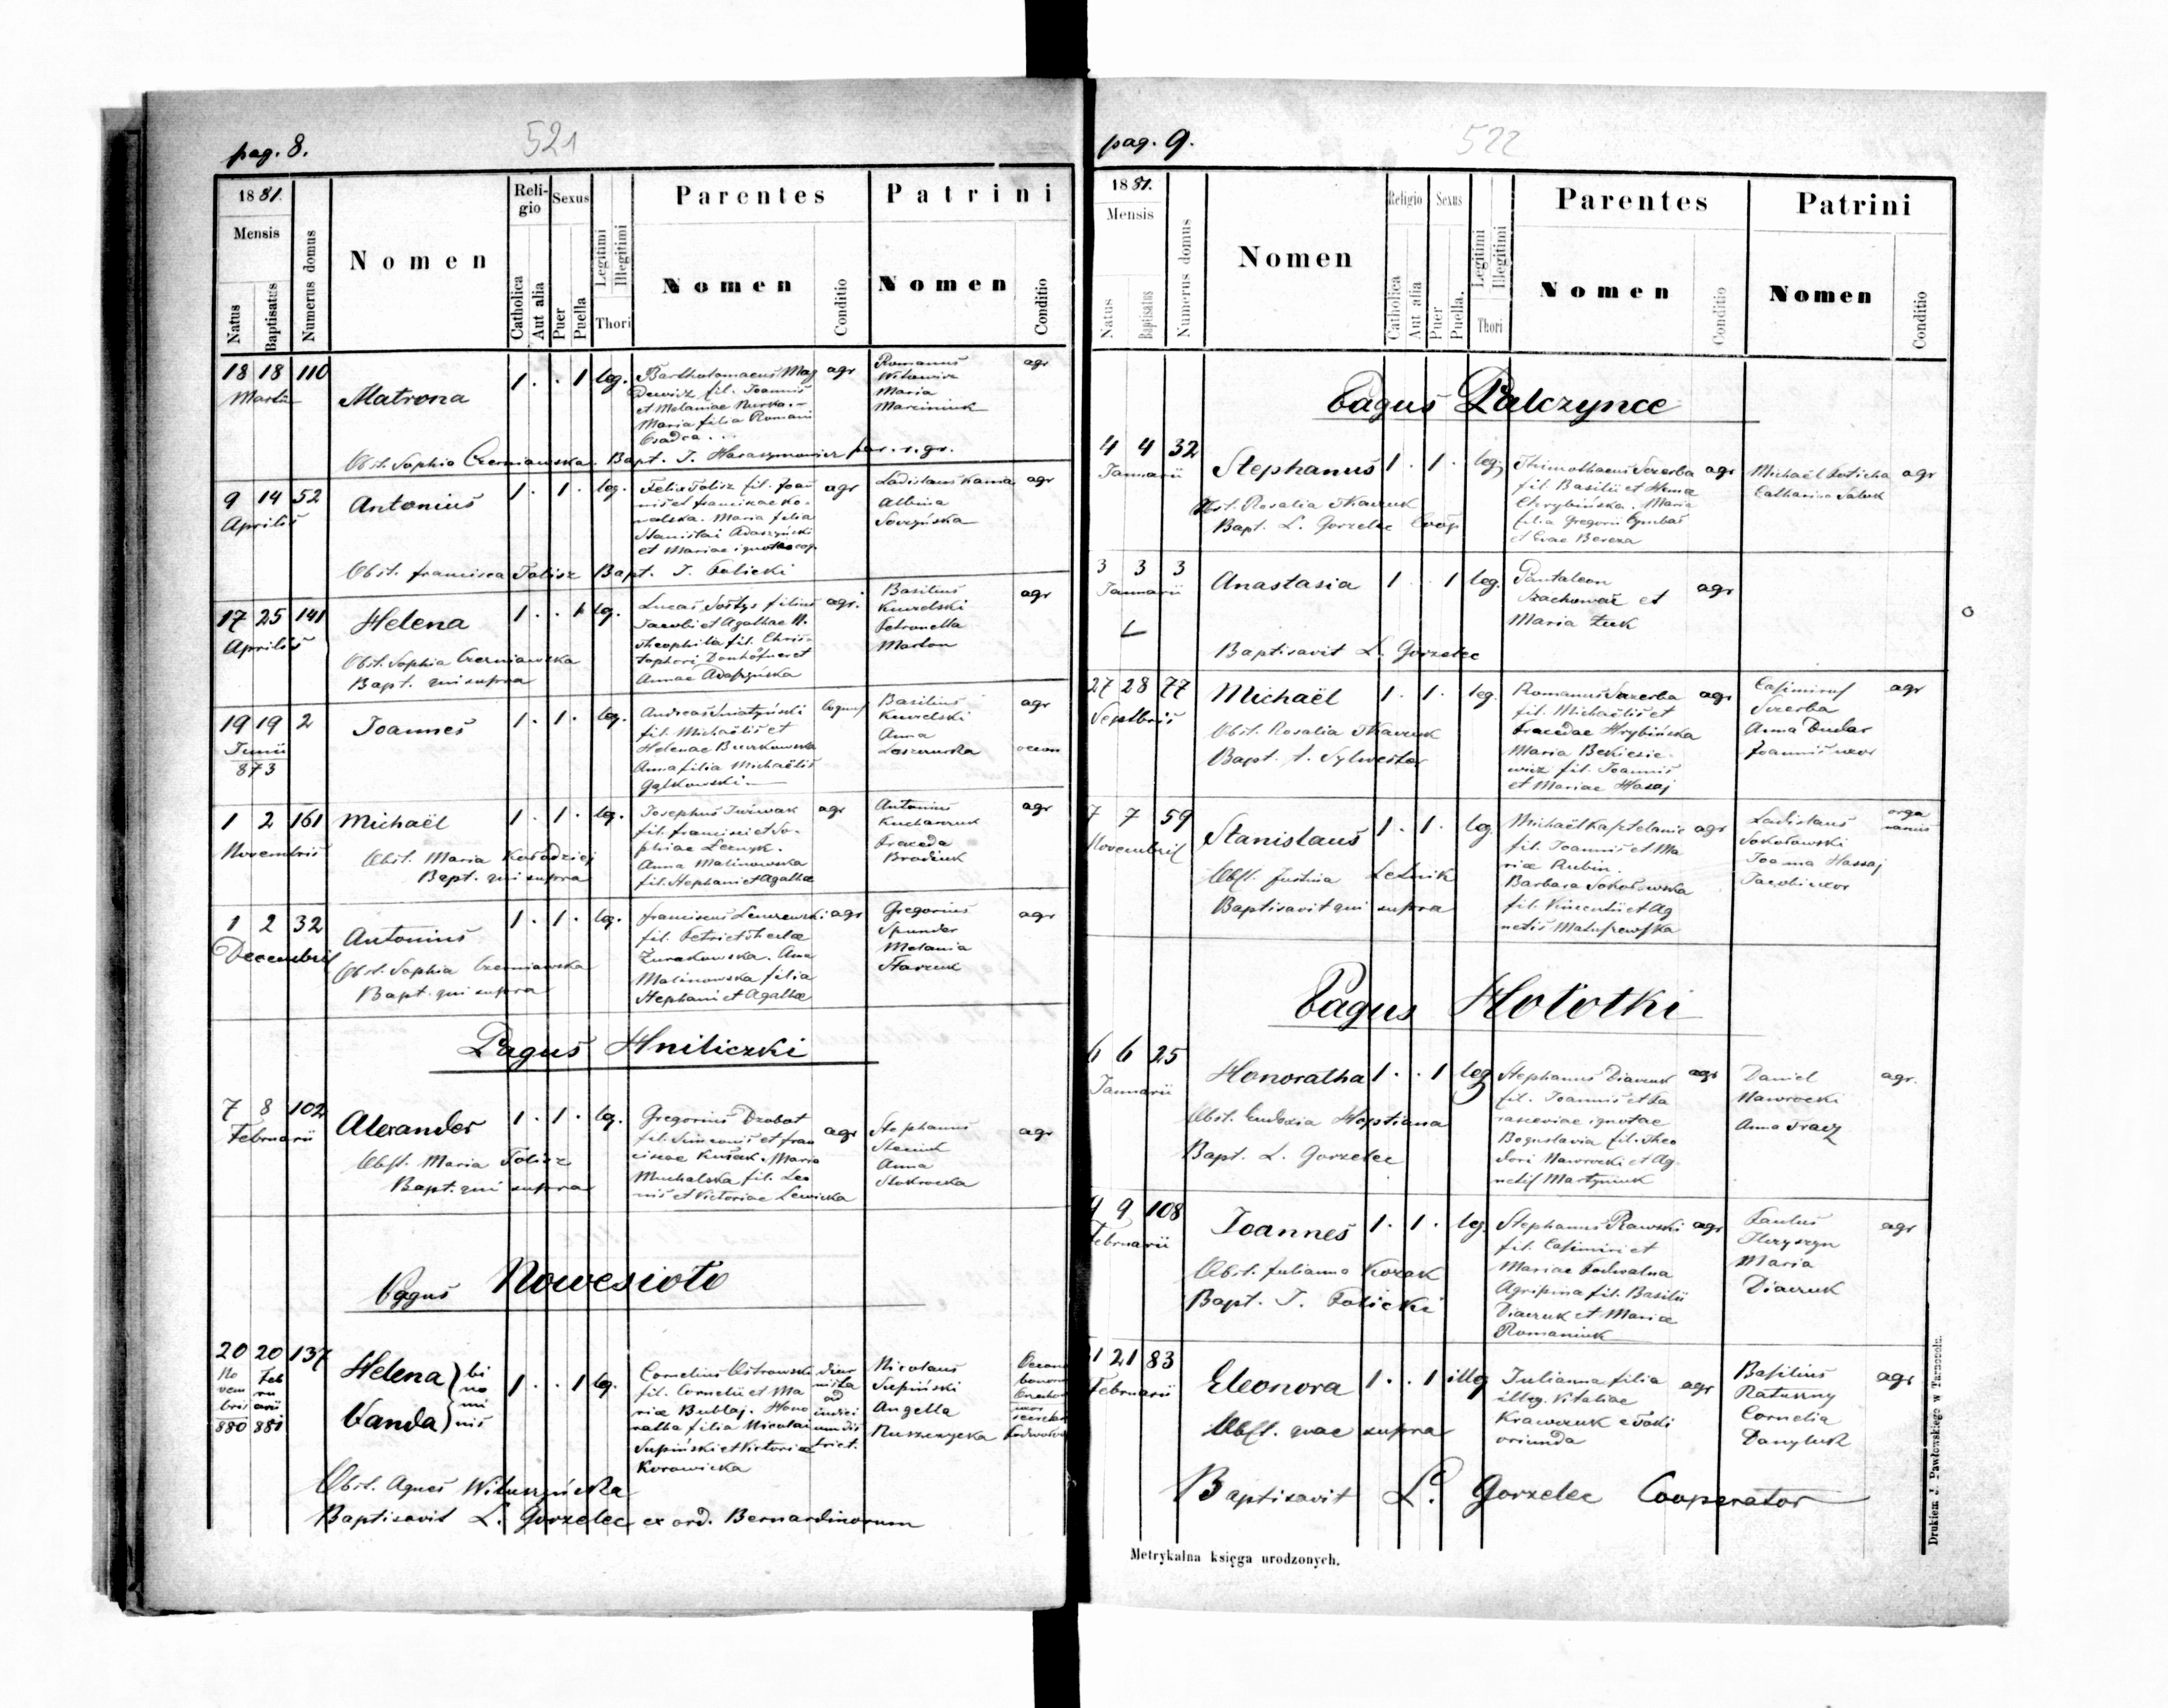 pag. 8.
521
18 81.
Mensis
Natus
Baptisatus
Numerus domus
Nomen
Religio
Catholica
Aut alia
Sexus
Puer
Puella
Legitimi
Illegitimi
Thori
Parentes
Nomen
Conditio
Patrini
Nomen
Conditio
18 18 110
Martii
Matrona
1 . . 1 leg.
Bartholomaeus Mag
Dewicz fil. Joannis
et Melaniae
Maria filia Romani
agr
Romanus
Witowicz
Maria
Marciniuk
agr
Obst. Sophia Czerniawska. Bapt. J. Harasymowicz par. r. gr.
9 14 52
Aprilis
Antonius
1 . 1 . leg.
Felix Tolisz fil. Joan
nis et Franciscae Ko-
walska. Maria filia
Stanislai Adaszyński
et Mariae ignotae cog.
agr
Ladislaus Kania
Albina
agr
Obst. Francisca Tolisz Bapt. J. Folicki
17 25 141
Aprilis
Helena
1 . . 1 leg.
Lucas Soltys filius
Jacobi et Agathae N.
Theophila fil. Chris-
tophori Donhöfner et
Annae Adaszyńska
agr.
Basilius
Kuzelski
Petronella
Marton
agr
Obst. Sophia Czerniawska
Bapt. qui supra
19 19 2
Junii
873
Joannes
1 . 1 . leg.
Andreas Sniatyński
fil. Michaëlis et
Helenae Burkowska
Anna filia Michaëlis
Gąłkowski
coquus
Basilius
Kuzelski
Anna
agr
1 2 161
Novembris
Michaël
1 . 1 . leg.
Josephus
fil. Francisci et So-
phiae
Anna Malinowska
fil. Stephani et Agathae
agr
Antonius
Kucharzuk
Praceda
Brodiuk
agr
Obst. Maria Kołodziej
Bapt. qui supra
1 2 32
Decembris
Antonius
1 . 1 . leg.
Franciscus
fil. Petri et Theclae
Żurakowska. Anna
Malinowska filia
Stephani et Agathae
agr
Gregorius
Spunder
Melania
agr
Obst. Sophia Czerniawska
Bapt. qui supra
Pagus Hniliczki
7 8 102
Februarii
Alexander
1 . 1 . leg.
Gregorius Dzobot
fil. Simeonis et Fran
ciscae . Maria
Muchalska fil. Leo
nis et Victoriae Lewicka
agr
Stephanus
Anna
Stokrocka
agr
Obst. Maria Tolisz
Bapt. qui supra
Pagus Nowesioło
20 20 137
No Feb
vem ru
bris arii
880 881
Helena } bi
no
mi
Vanda } nis
1 . . 1 leg.
Cornelius Ostrowski
fil. Cornelii et Ma
riae Bublaj. Hono
ratha filia Nicolai
Supiński et Victoriae
Korowicka
Nicolaus
Supiński
Angella
Ruszczycka
Obst. Agnes Wituszyńska
Baptisavit L. Gorzelec ex ord. Bernardinorum
pag. 9.
522
18 81.
Mensis
Natus
Baptisatus
Numerus domus
Nomen
Religio
Catholica
Aut alia
Sexus
Puer
Puella.
Legitimi
Illegitimi
Thori
Parentes
Nomen
Conditio
Patrini
Nomen
Conditio
Pagus Palczynce
4 4 32
Januarii
Stephanus
1 . 1 . leg.
Thimothaeus Szzerba
fil. Basilii et Anna
Chrybińska. Maria
filia Gregorii Cymbas
et Evae Bereza
agr
Michaël
Catharina
agr
Obst. Rosalia Tkaczuk
Bapt. L. Gorzelec Coop
3 3 3
Januarii
Anastasia
1 . . 1 leg.
Pantaleon
Szachowar et
Maria Żuk
agr
Baptisavit L. Gorzelec
27 28 77
Septbris
Michaël
1 . 1 . leg.
Romanus Szzerba
fil. Michaëlis et
Pracedae Hrybińska
Maria Bekiesie-
wicz fil. Joannis
et Mariae Hasaj
agr
Casimirus
Szzerba
Anna Dudar
Joannis uxor
agr
Obst. Rosalia Tkaczuk
Bapt. t. Sylwester
7 7 59
Novembris
Stanislaus
1 . 1 . leg.
Michaël Kasztelanic
fil. Joannis et Ma
riae Rubin.
Barbara Sokołowska
fil. Vincentii et Ag
netis Matuszewska
agr
Ladislaus
Sokołowski
Joanna Hassaj
Jacobi uxor
orga
narius
Obst. Justina Letnik
Baptisavit qui supra
Pagus Hołotki
6 6 25
Januarii
Honoratha
1 . . 1 leg
Stephanus Diaczuk
fil. Joannis et Pa
rasceviae ignotae
Boguslavia fil. Theo
dori Nawrocki et Ag-
netis Martyniuk
agr
Daniel
Nawrocki
Anna Tracz
agr.
Obst. Eudoxia Hoptiana
Bapt. L. Gorzelec
9 9 108
Februarii
Joannes
1 . 1 . leg
Stephanus Rawski
fil. Casimiri et
Mariae Podwalna
Agripina fil. Basilii
Diaczuk et Mariae
Romaniuk
agr
Paulus
Maria
Diaczuk
agr
Obst. Julianna Kozak
Bapt. J. Folicki
21 21 83
Februarii
Eleonora
1 . . 1 illeg
Julianna filia
illeg. Vitaliae
Krawczuk e Toki
oriunda
agr
Basilius
Ratuszny
Cornelia
Danyluk
agr
Obst. quae supra
Baptisavit L. Gorzelec Cooperator
Metrykalna księga urodzonych.
Drukiem J. Pawłowskiego w Tarnopolu.